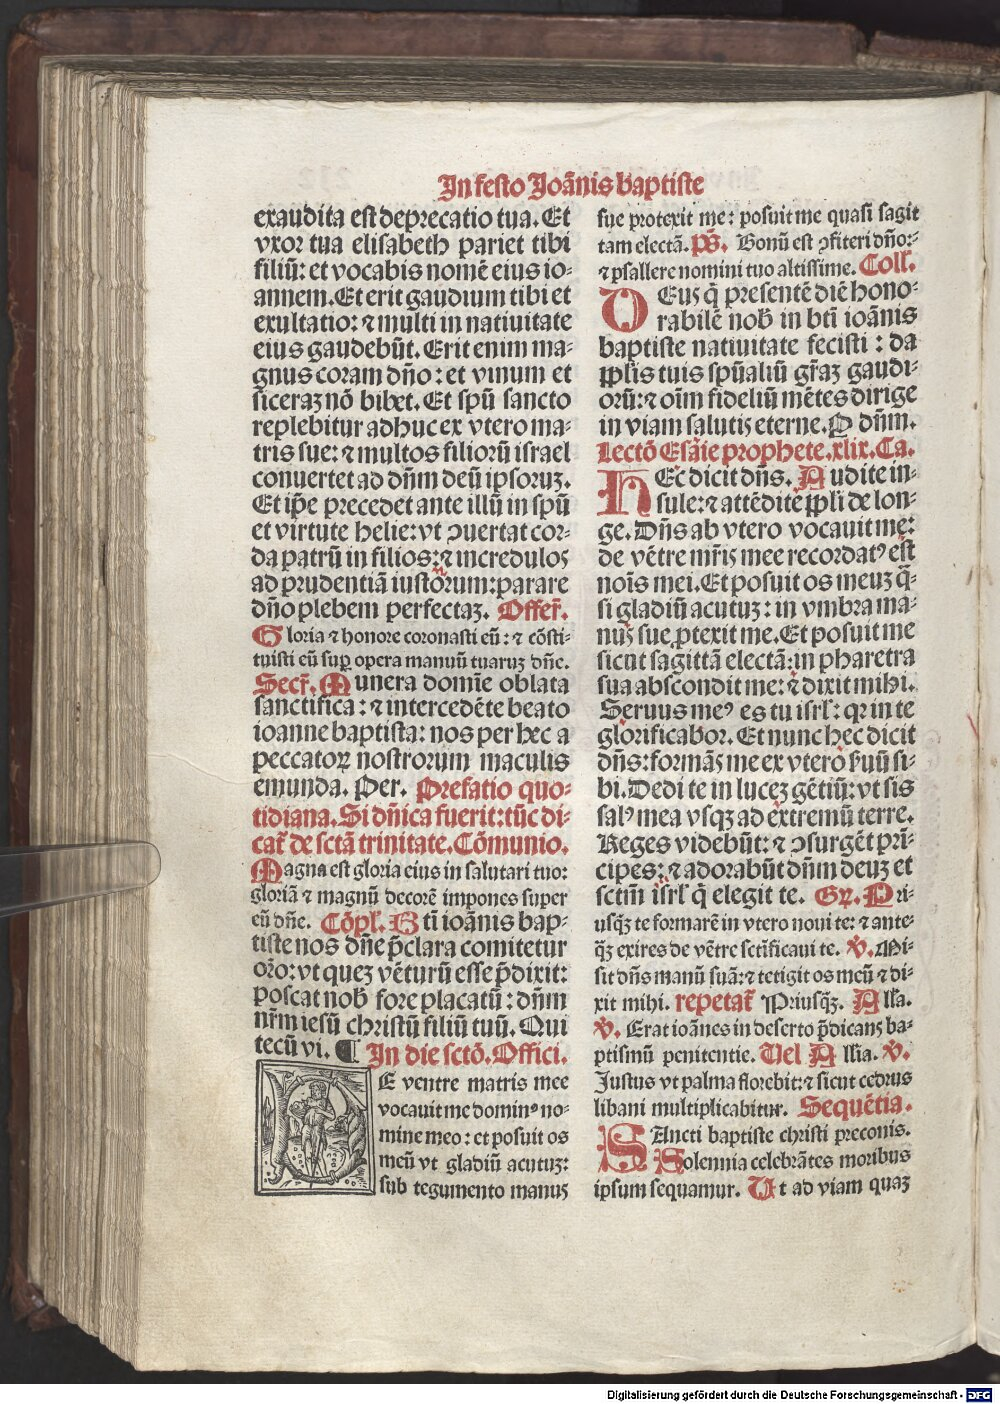 In festo Joānis baptiste
exaudita est deprecatio tua. Et
vxor tua elisabeth pariet tibi
filiū: et vocabis nomē eius io-
annem. Et erit gaudium tibi et
exultatio: ⁊ multi in natiuitate
eius gaudebūt. Erit enim ma-
gnus coram dño: et vinum et
siceraꝫ nō bibet. Et spū sancto
replebitur adhuc ex vtero ma-
tris sue: ⁊ multos filiorū israel
conuertet ad dñm deū ipsoruꝫ.
Et ip̄e precedet ante illū in spū
et virtute helie: vt ↄuertat cor-
da patrū in filios: ⁊ incredulos
ad prudentiā iustorum: parare
dño plebem perfectaꝫ. Offer̄.
Gloria ⁊ honore coronasti eū: ⁊ cōsti-
tuisti eū sup̱ opera manuū tuaruꝫ dñe.
Secr̄. Munera domīe oblata
sanctifica: ⁊ intercedēte beato
ioanne baptista: nos per hec a
peccatoꝝ nostrorum maculis
emunda. Per. Prefatio quo-
tidiana. Si dñica fuerit: tūc di-
cat̄ de sctā trinitate. Cōmunio.
Magna est gloria eius in salutari tuo:
gloriā ⁊ magnū decorē impones super
eū dñe. Cōpl. Bti ioānis bap-
tiste nos dñe p̄clara comitetur
or̄o: vt queꝫ vēturū esse p̄dixit:
poscat nob̄ fore placatū: dñm
nr̄m iesū christū filiū tuū. Qui
tecū vi. ¶ In die sctō. Offici.
DE ventre matris mee
vocauit me dominꝰ no-
mine meo: et posuit os
meū vt gladiū acutuꝫ:
sub tegumento manus
sue protexit me: posuit me quasi sagit
tam electā. pS̄. Bonū est ↄfiteri dño:-
⁊ psallere nomini tuo altissime. Coll̄.
DEus q̄ presentē diē hono-
rabilē nob̄ in bti ioānis
baptiste natiuitate fecisti: da
pp̄lis tuis spūaliū gr̄aꝫ gaudi-
orū: ⁊ oīm fideliū mētes dirige
in viam salutis eterne. P dñm.
Lectō Esaīe prophete. xlix. Ca.
HEc dicit dñs. Audite in-
sule: ⁊ attēdite pp̄li de lon-
ge. Dñs ab vtero vocauit me:
de vētre mr̄is mee recordatꝰ est
noīs mei. Et posuit os meuꝫ q̄-
si gladiū acutuꝫ: in vmbra ma-
nus sue ꝓtexit me. Et posuit me
sicut sagittā electā: in pharetra
sua abscondit me: ⁊ dixit mihi.
Seruus meꝰ es tu isrl̄: qꝛ in te
glorificabor. Et nunc hec dicit
dñs: formās me ex vtero s̄uū si-
bi. Dedi te in luceꝫ gētiū: vt sis
salꝰ mea vsqꝫ ad extremū terre.
Reges videbūt: ⁊ ↄsurgēt prī-
cipes: ⁊ adorabūt dñm deuꝫ et
sctm̄ isrl̄ q̄ elegit te. Gꝛ. Pri-
usqꝫ̄ te formarē in vtero noui te: ⁊ ante-
qꝫ̄ exires de vētre sctīficaui te. ℣. Mi-
sit dñs manū suā: ⁊ tetigit os meū ⁊ di-
xit mihi. repetat̄ Priusqꝫ̄. All̄a.
℣. Erat ioānes in deserto p̄dicans ba-
ptismū penitentie. Uel Allīa. ℣.
Justus vt palma florebit: ⁊ sicut cedrus
libani multiplicabitur. Sequētia.
SAncti baptiste christi preconis.
Solennia celebrātes moribus
ipsum sequamur. Ut ad viam quaꝫ
Digitalisierung gefördert durch die Deutsche Forschungsgemeinschaft - DFG